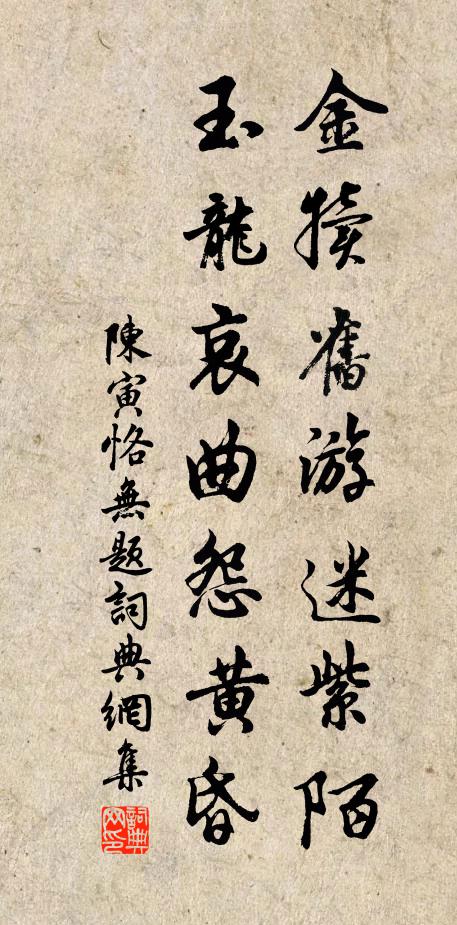 金犢舊游迷紫陌
玉龍哀曲怨黃昏
陳寅恪無題詞典網集
詞典網印